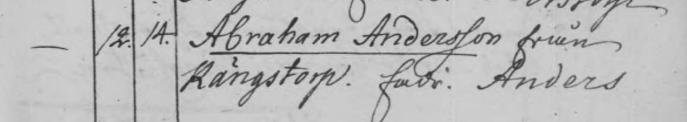 — 12. 14. Abraham Andersson från
Rängstorp. fadr. Anders